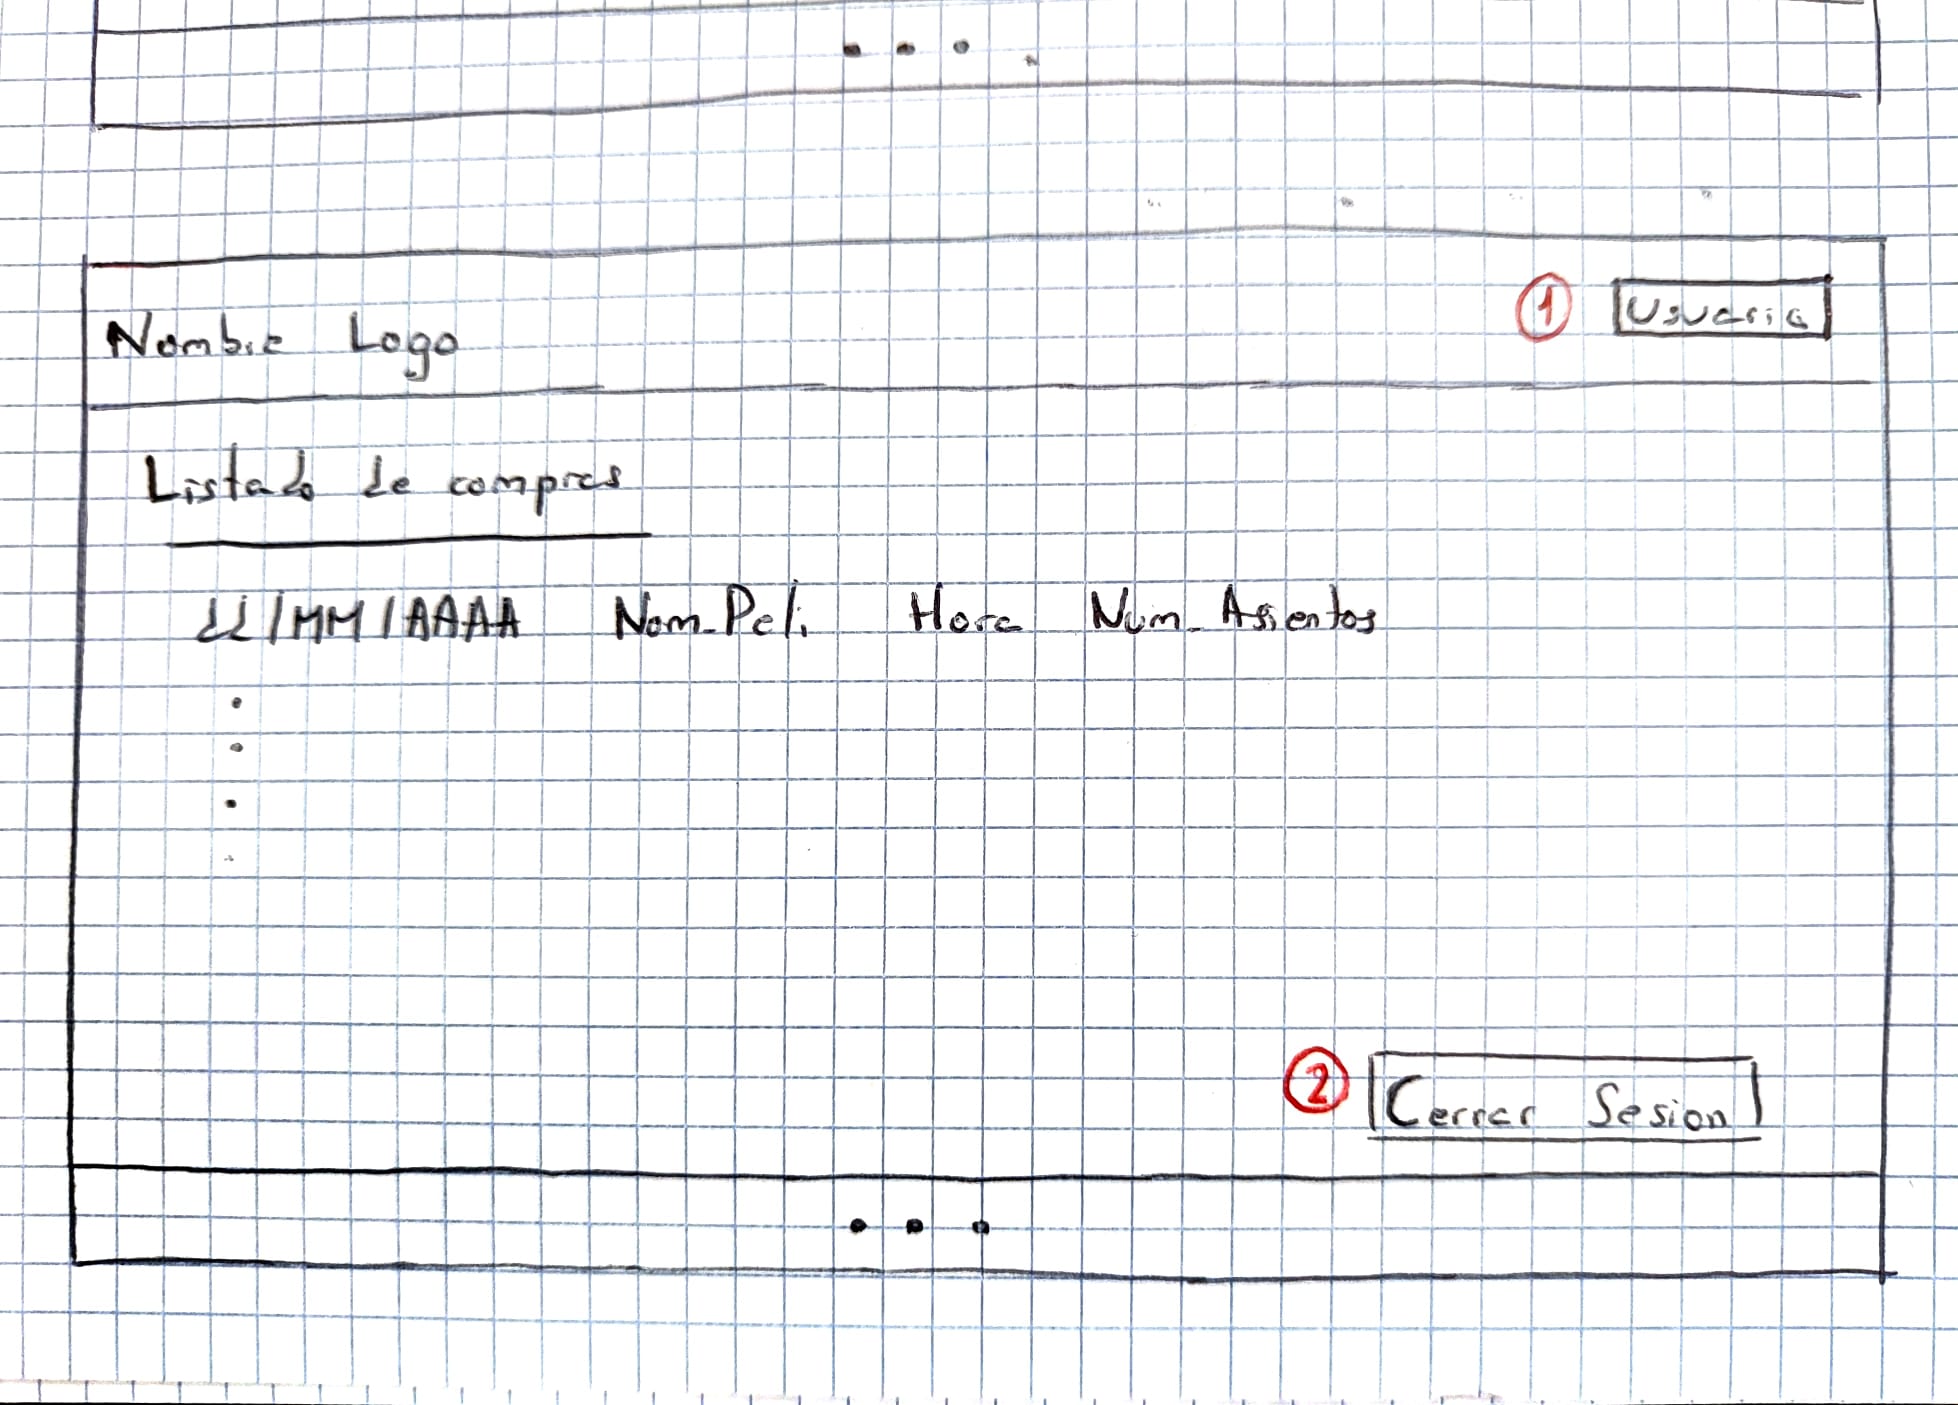 • • •
Nombre Logo ① Usuario
Listado de compras
dd/MM/AAAA Nom_Peli Hora Num_Asientos
② Cerrar Sesion
• • •